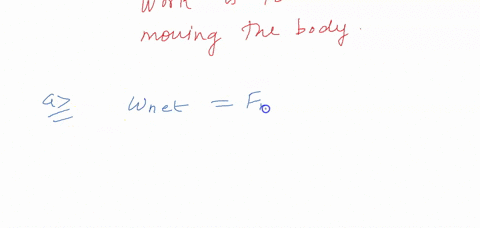 Work is
moving the body.
a> Wnet = Fn